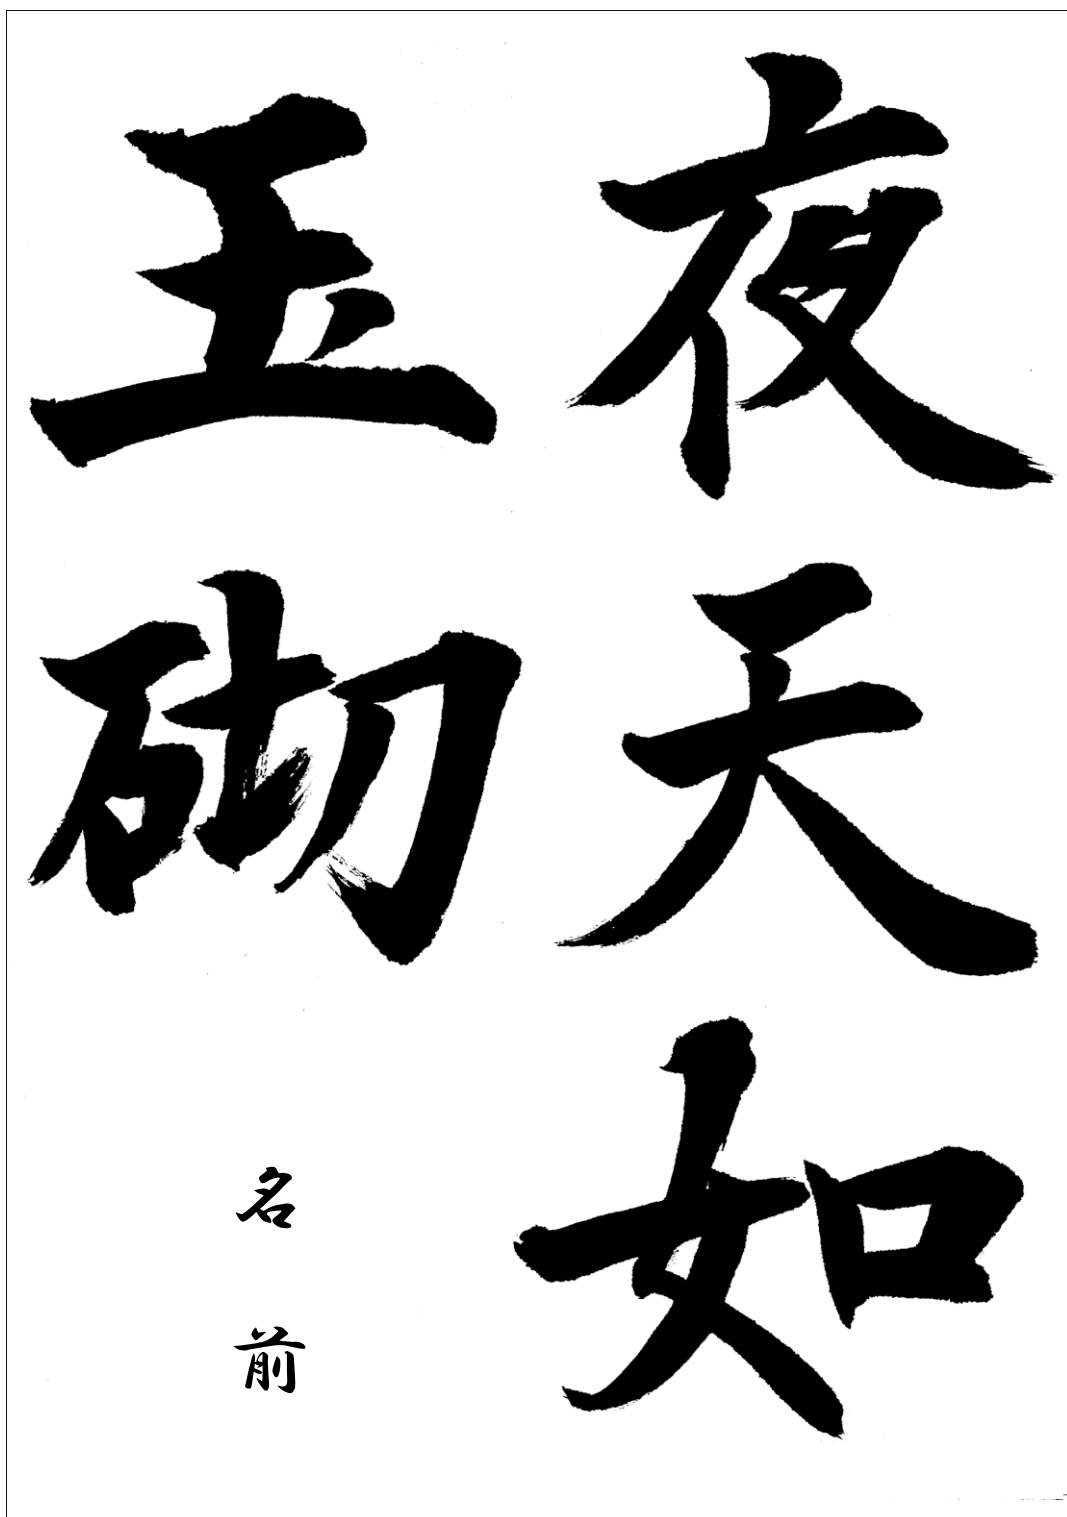 夜天如
玉砌
名前